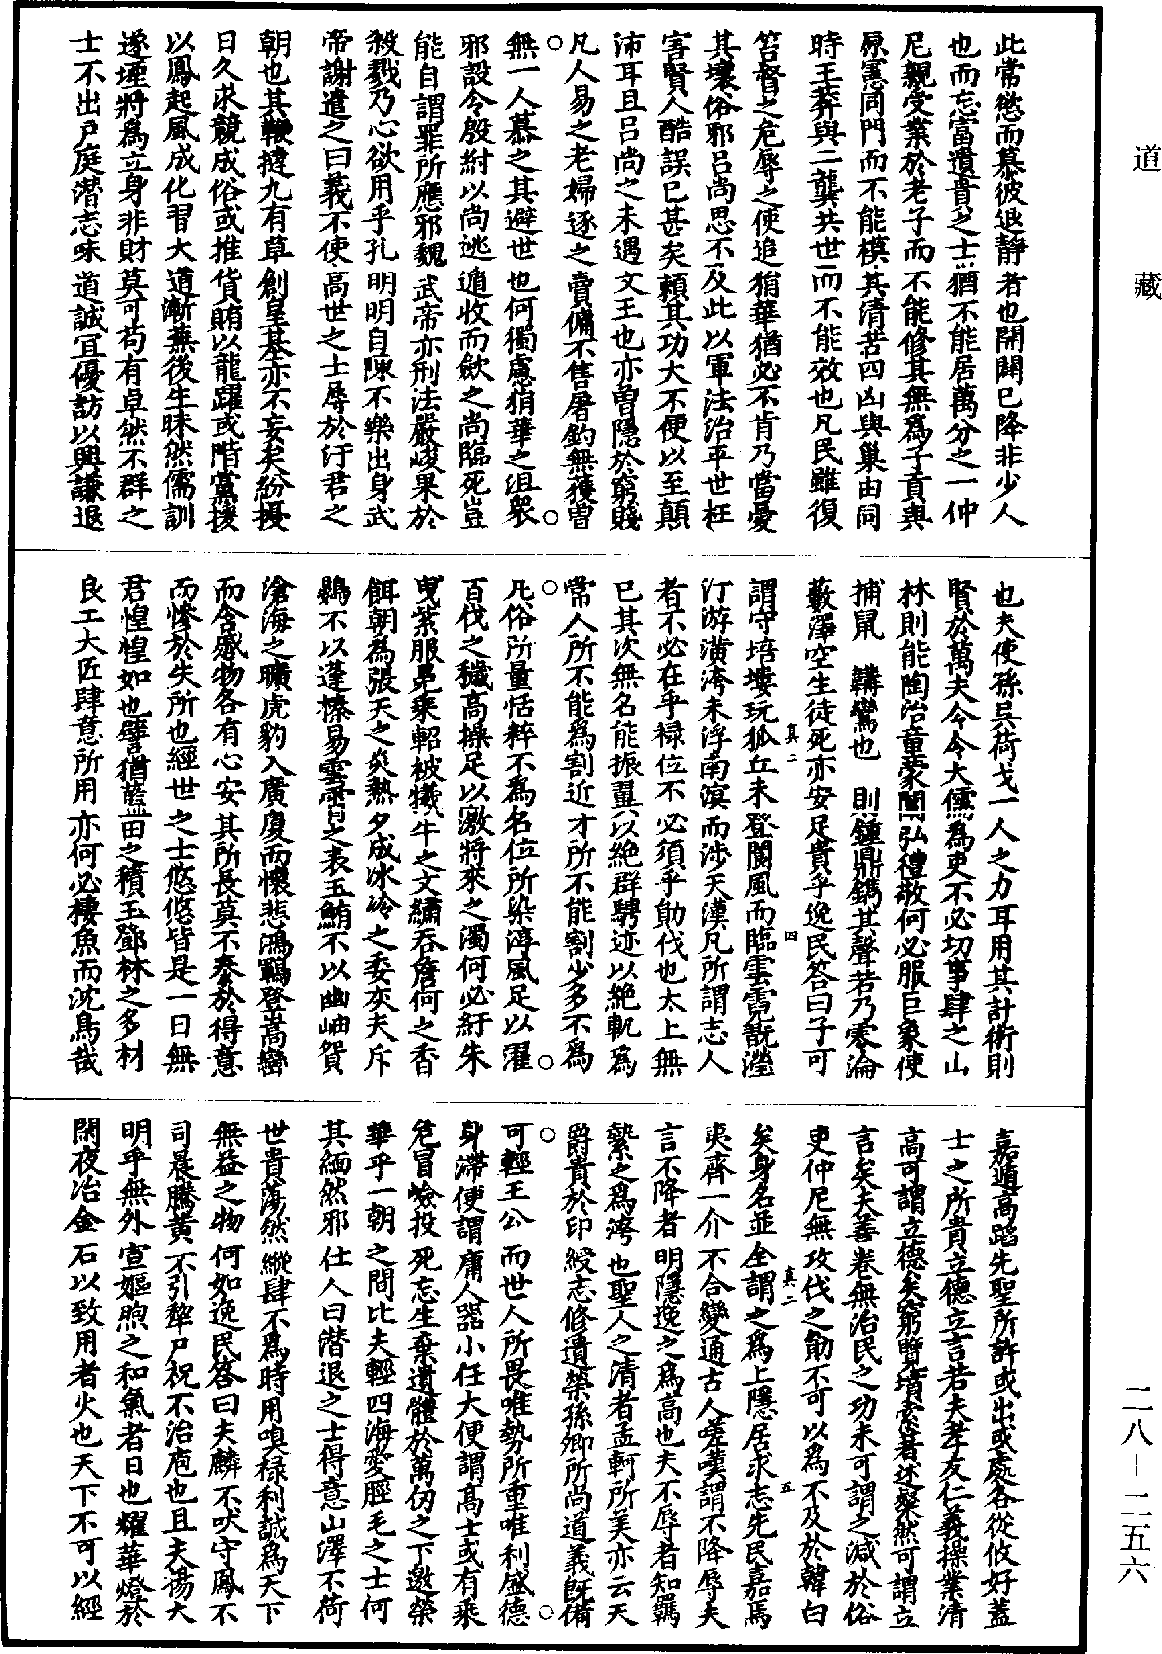 道藏
此常慾而慕彼退靜者也開闢已降非少人
也而忘富遺貴之士猶不能居萬分之一仲
尼親受業於老子而不能修其無為子貢與
原憲同門而不能模其清苦四凶與巢由同
時王莽與二龔共世而不能效也凡民雖復
笞督之危辱之使追狷華猶必不肯乃當憂
其壞俗邪呂尚思不及此以軍法治平世枉
害賢人酷誤已甚矣賴其功大不便以至顛
沛耳且呂尚之未遇文王也亦曾隱於窮賤
凡人易之老婦逐之賣傭不售屠釣無獲曾
無一人慕之其避世也何獨慮狷華之沮眾
邪設令殷紂以尚逃遁收而斂之尚臨死豈
能自謂罪所應邪魏武帝亦刑法嚴峻果於
殺戮乃心欲用乎孔明明自陳不樂出身武
帝謝遣之曰義不使高世之士辱於汙君之
朝也其鞭撻九有草創皇基亦不妄矣紛擾
日久求競成俗或推貨賄以龍躍或階黨援
以鳳起風成化習大道漸蕪後生昧然儒訓
遂堙將為立身非財莫可苟有卓然不群之
士不出戶庭潛志味道誠宜優訪以興謙退
也夫使孫吳荷戈一人之力耳用其計術則
賢於萬夫今令大儒為吏不必切事肆之山
林則能陶冶童蒙闡弘禮敬何必服巨象使
捕鼠 韝鸞也 則鍾鼎鐫其聲若乃零淪
藪澤空生徒死亦安足貴乎逸民答曰子可
真二 四
謂守培塿玩狐丘未登閬風而臨雲霓翫瀅
汀游潢洿未浮南溟而涉天漢凡所謂志人
者不必在乎祿位不必須乎勛伐也太上無
已其次無名能振翼以絕群騁迹以絕軌為
常人所不能為割近才所不能割少多不為
凡俗所量恬粹不為名位所染淳風足以濯
百代之穢高操足以激將來之濁何必紆朱
曳紫服冕乘軺被犧牛之文繡吞詹何之香
餌朝為張天之炎熱夕成冰冷之委灰夫斥
鷃不以蓬榛易雲霄之表玉鮪不以幽岫貿
滄海之曠虎豹入廣廈而懷悲鴻鶤登嵩巒
而含慼物各有心安其所長莫不泰於得意
而慘於失所也經世之士悠悠皆是一日無
君惶惶如也譬猶藍田之積玉鄧林之多材
良工大匠肆意所用亦何必棲魚而沈鳥哉
嘉遁高蹈先聖所許或出或處各從攸好蓋
士之所貴立德立言若夫孝友仁義操業清
高可謂立德矣窮覽墳索著述粲然可謂立
言矣夫善卷無治民之功未可謂之減於俗
吏仲尼無攻伐之勛不可以為不及於韓白
真二 五
矣身名並全謂之為上隱居求志先民嘉焉
夷齊一介不合變通古人嗟嘆謂不降辱夫
言不降者明隱逸之為高也夫不辱者知羈
縶之為洿也聖人之清者孟軻所美亦云天
爵貴於印綬志修遺榮孫卿所尚道義既備
可輕王公而世人所畏唯勢所重唯利盛德
身滯便謂庸人器小任大便謂高士或有乘
危冒嶮投死忘生棄遺體於萬仞之下邀榮
華乎一朝之間比夫輕四海愛脛毛之士何
其緬然邪仕人曰潛退之士得意山澤不荷
世貴蕩然縱肆不為時用嗅祿利誠為天下
無益之物何如逸民答曰夫麟不吠守鳳不
司晨騰黃不引犂尸祝不治庖也且夫揚大
明乎無外宣嫗煦之和氣者日也耀華燈於
闇夜冶金石以致用者火也天下不可以經
二八—二五六